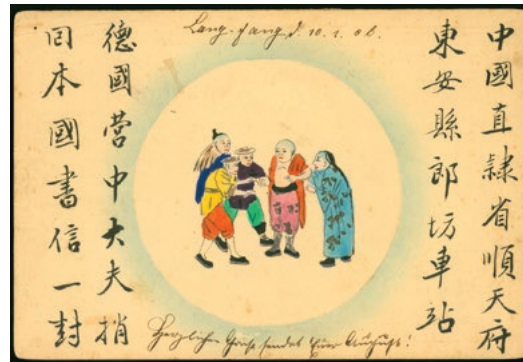 Lang-fang d. 10. 1. 06.
中國直隸省順天府
東安縣郎坊車站
德國营中大夫捎
囘本國書信一封
Herzliche Grüße sendet Euer August!